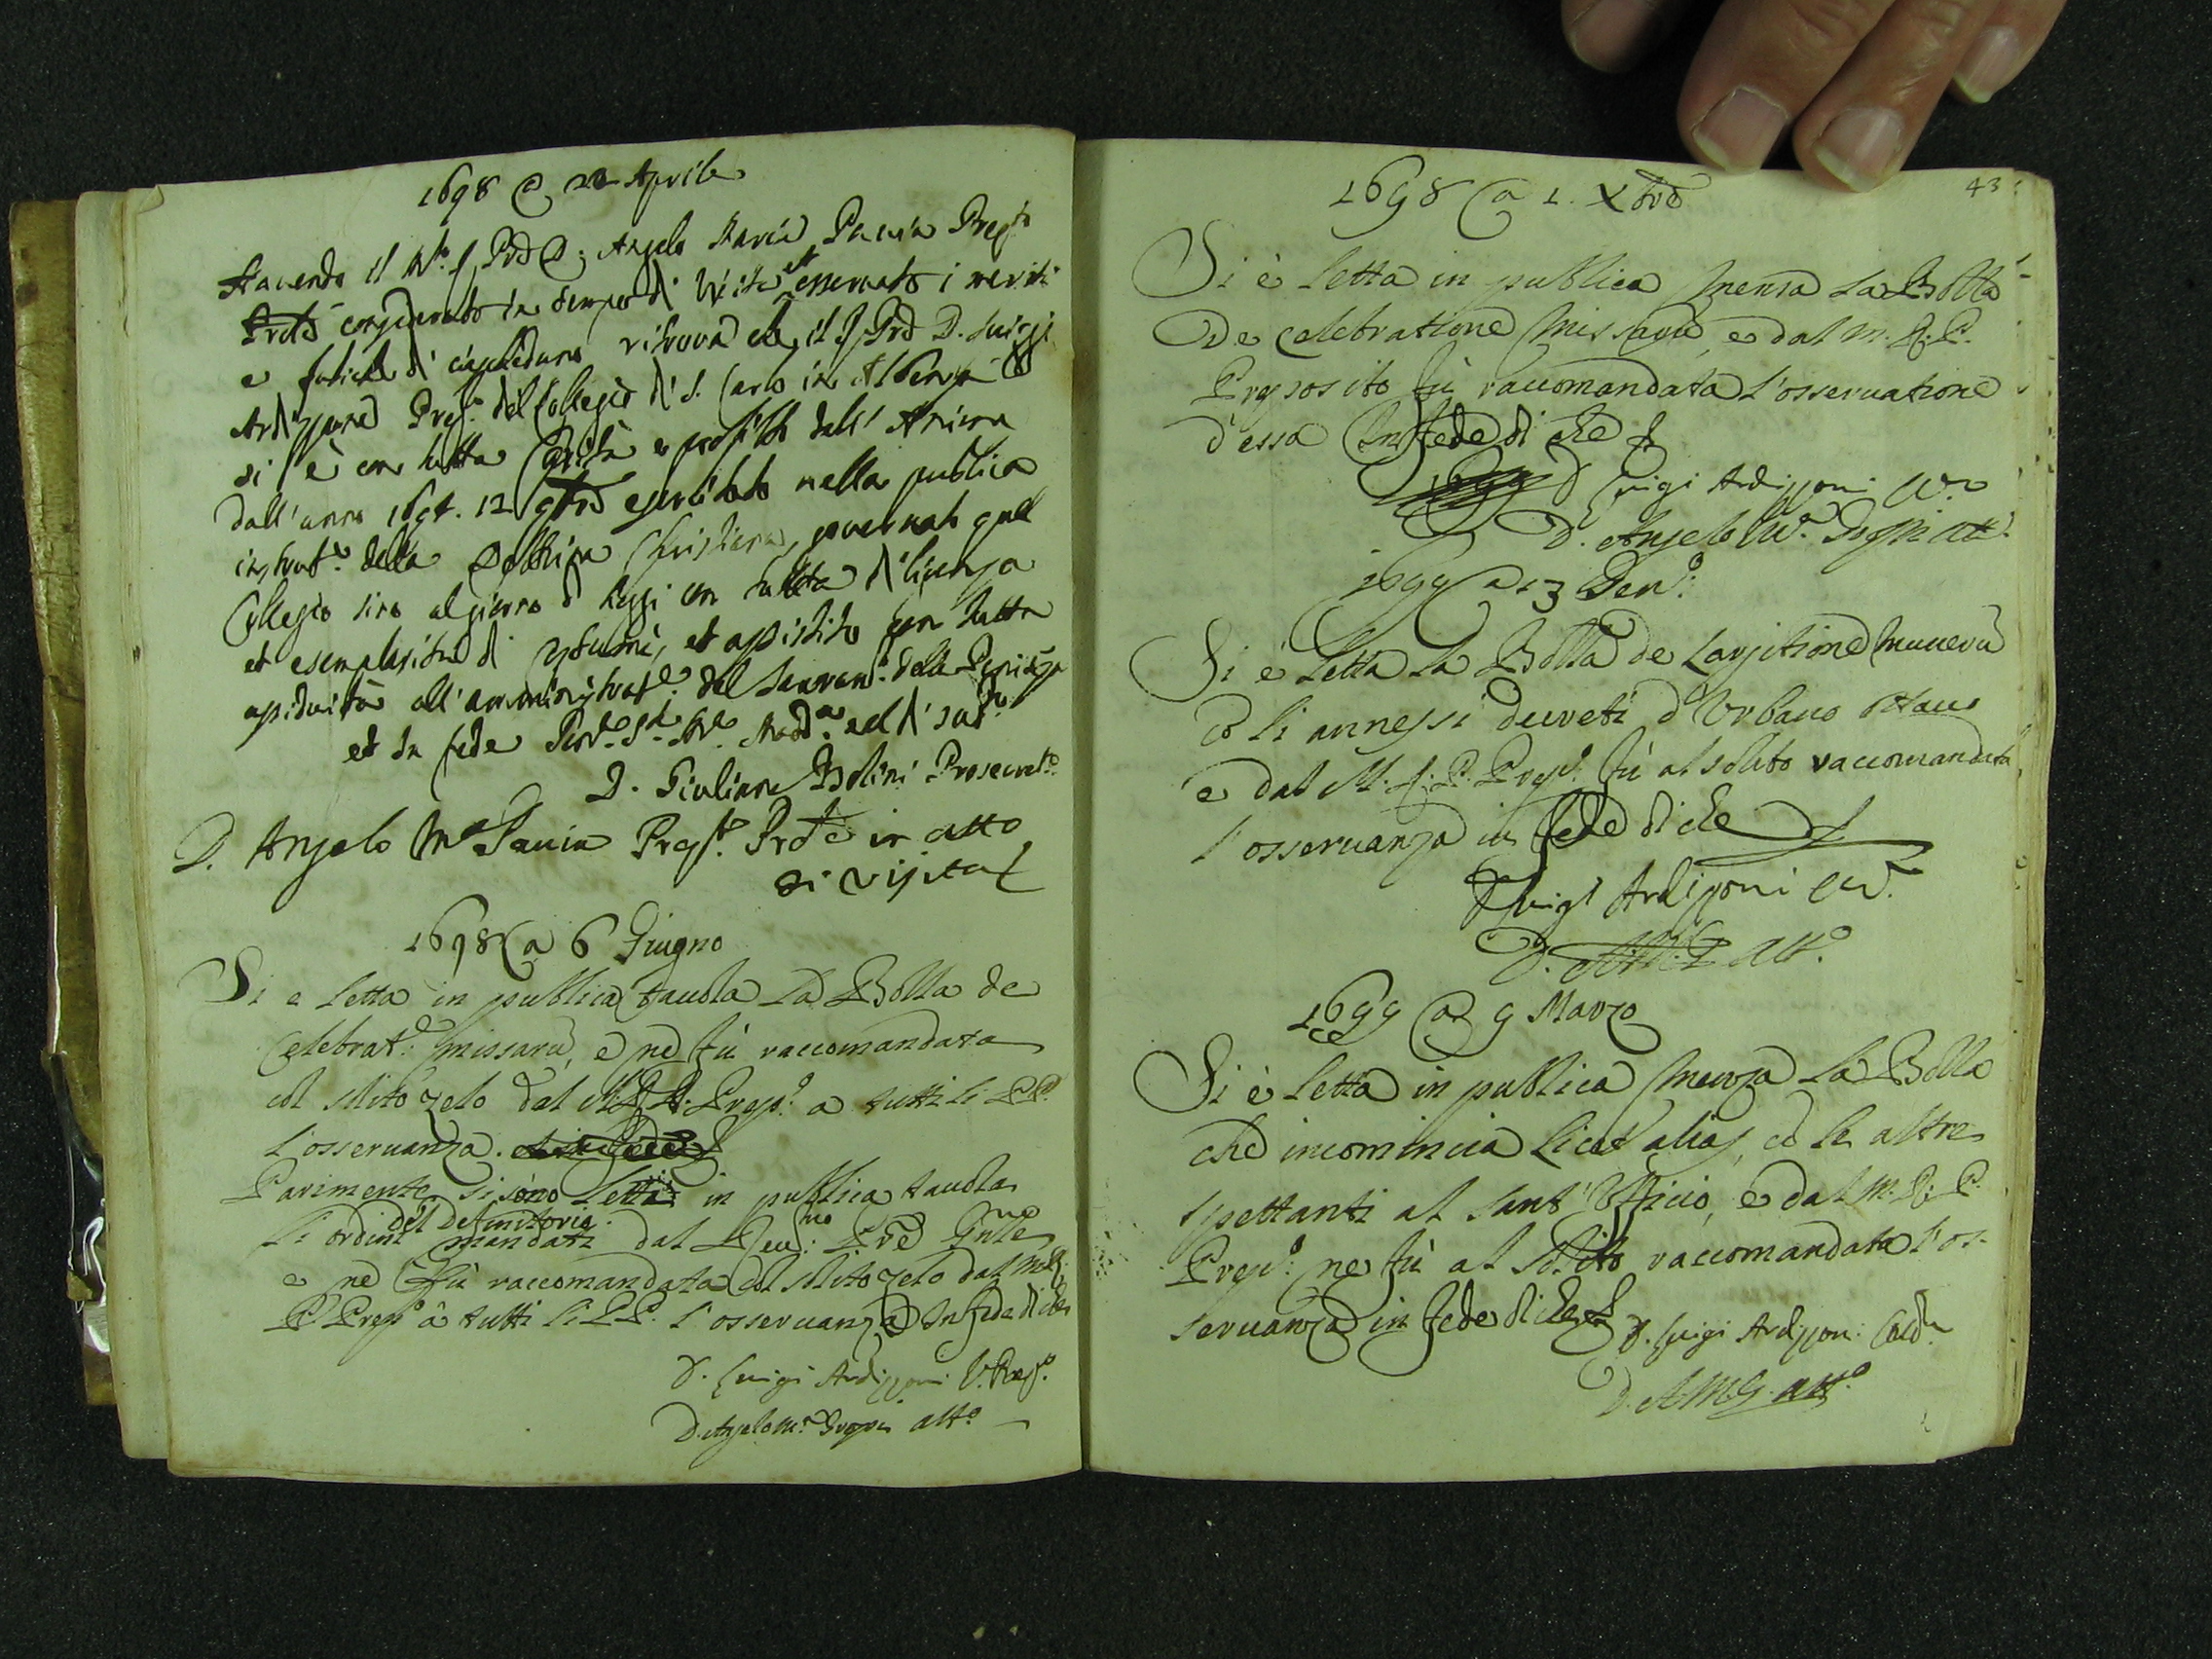 1698 @ 22 Aprile
Havendo il M.to R. Prd D. Angelo Maria Pauia Prep.to
considerato in tempo di Visita et osservato i meriti
e fatiche di ciascheduno ritrova che il R. Prd D. Luiggi
Ardizzone Prep.o del Collegio di S. Carlo in Albenga
si è con tutta Carità e profitto dell' Anime
dall' anno 1694. 12 9brd esercitato nella publica
instrut.e della Dottrina Christiana, governato quel
Collegio sino al giorno d' hoggi con tutta diligenza
et esemplarità di costumi, et assistito con tutta
assiduità all' amministrat.e del Sacram.o della Penitenza
et In fede
D. Giuliano Bolini Prosecret.o
D. Angelo M.a Pauia Prep.to in atto
di visita
1698 @ 6 Giugno
Si e letta in publica tauola La Bolla de
Celebrat.e missarū, e ne fù raccomandata
col solito zelo dal M. R. P. Prep.o a tutti li PP.
l'osseruanza.
Parimente si sono letti in publica tauola
del definitorio
li ordini mandati dal Reu.mo Pre Gnle
e ne fù raccomandata col solito zelo dal M. R.
P. Prep.o à tutti li PP. l'osseruanza In fede di che
D. Luigi Ardizzoni V. Prep.o
D. Angelo M.a Groppi att.o
43
1698 @ 1. Xbrd
Si è letta in publica mensa La Bolla
De Celebratione Missarū, e dal M. R. P.
Preposito fù raccomandata l'osseruatione
d'essa In fede di che
D Luigi Ardizzoni
D. Angelo M.a att.o
1699 @ 13 Gen.o
Si è letta La Bolla de Largitione munerū
cō li annessi decreti d'Urbano Ottauo
e dal M. R. P. Prep.o fù al solito raccomandata
l'osseruanza in fede di che
D Luigi Ardizzoni
D. att.o
1699 @ 9 Marzo
Si è letta in publica menza La Bolla
che incomincia Licet alias, cō le altre
spettanti al Sant' Officio, e dal M. R. P.
Prep.o ne fù al solito raccomandata l'os-
seruanza in fede di che
D. Luigi Ardizzoni
D. A. M. G. att.o